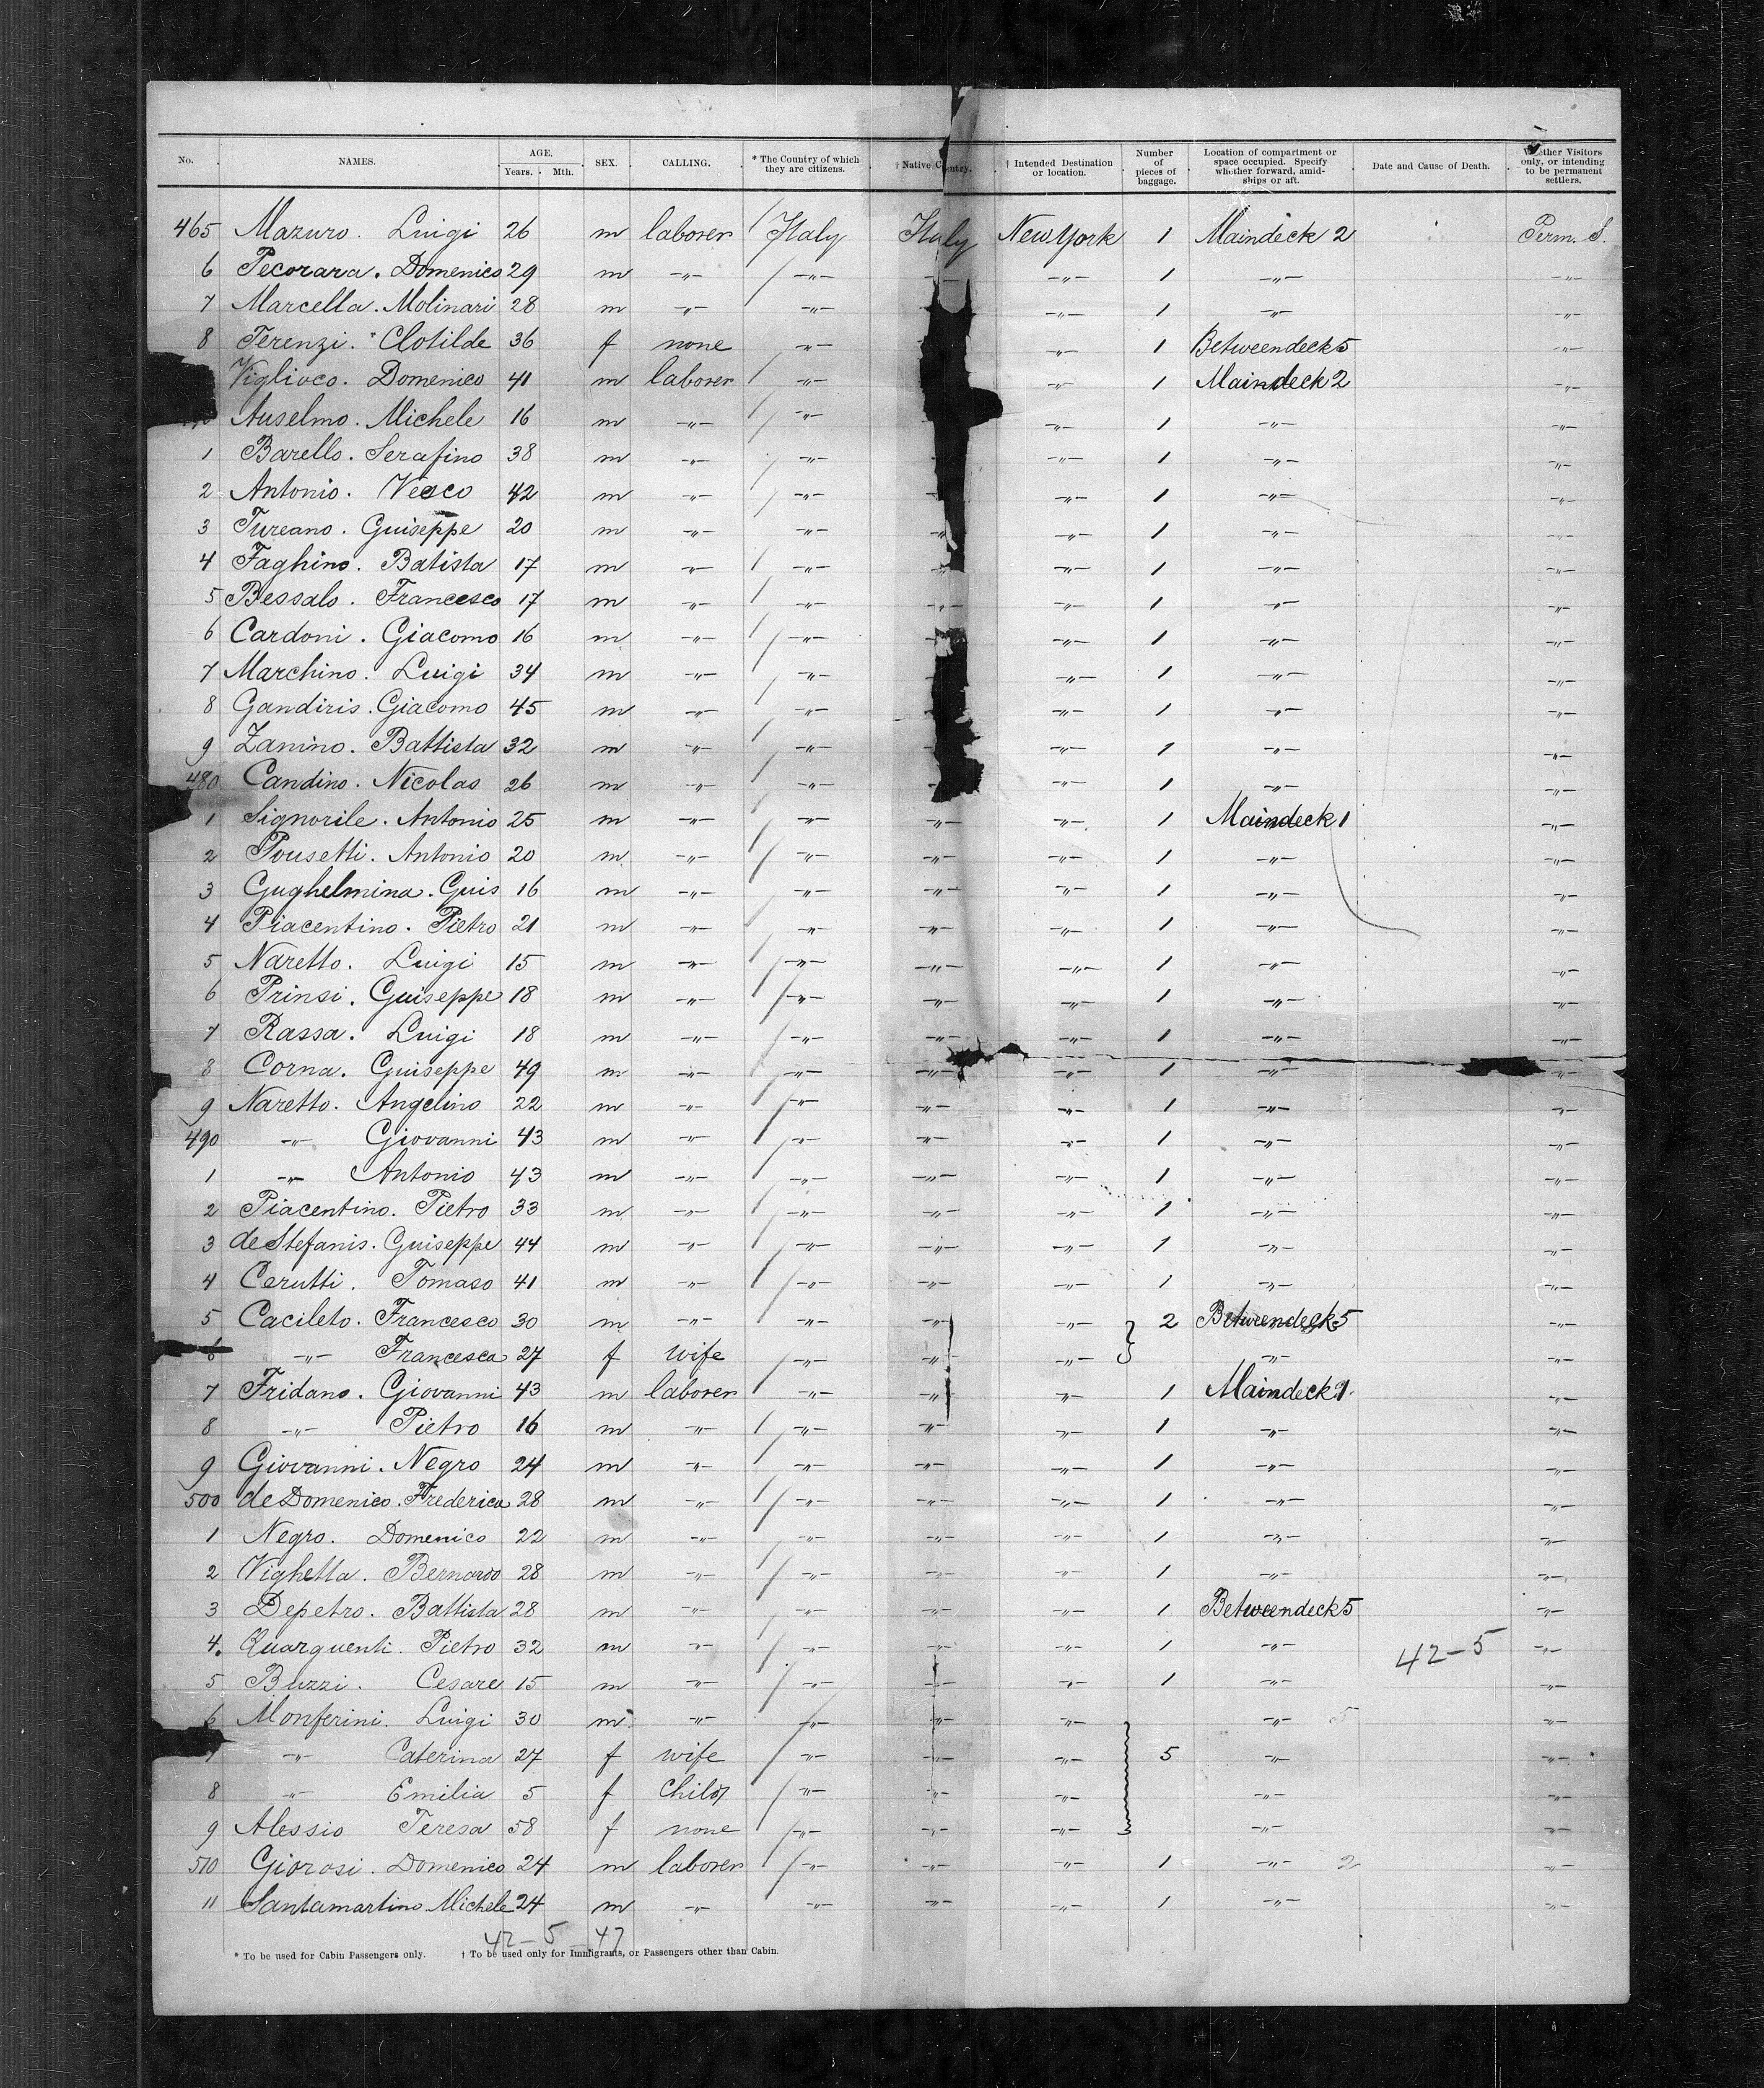 No. NAMES. AGE. Years. Mth. SEX. CALLING. * The Country of which they are citizens. † Native Country. † Intended Destination or location. Number of pieces of baggage. Location of compartment or space occupied. Specify whether forward, amidships or aft. Date and Cause of Death. Whether Visitors only, or intending to be permanent settlers.
465 Mazuro. Luigi 26 m laborer Italy Italy New York 1 Maindeck 2 Perm. S.
6 Pecorara. Domenico 29 m -"- -"- -"- 1 -"- -"-
7 Marcella. Molinari 28 m -"- -"- -"- 1 -"- -"-
8 Terenzi. Clotilde 36 f none -"- -"- 1 Betweendeck 5 -"-
Viglioco. Domenico 41 m laborer -"- -"- 1 Maindeck 2 -"-
Anselmo. Michele 16 m -"- -"- -"- 1 -"- -"-
1 Barello. Serafino 38 m -"- -"- -"- 1 -"- -"-
2 Antonio. Vesco 42 m -"- -"- -"- 1 -"- -"-
3 Tureano. Guiseppe 20 m -"- -"- -"- 1 -"- -"-
4 Faghino. Batista 17 m -"- -"- -"- 1 -"- -"-
5 Bessalo. Francesco 17 m -"- -"- -"- -"- 1 -"- -"-
6 Cardoni. Giacomo 16 m -"- -"- -"- 1 -"- -"-
7 Marchino. Luigi 34 m -"- -"- -"- 1 -"- -"-
8 Gandiris. Giacomo 45 m -"- -"- -"- 1 -"- -"-
9 Zanino. Battista 32 m -"- -"- -"- 1 -"- -"-
480 Candino. Nicolas 26 m -"- -"- -"- 1 -"- -"-
1 Signorile. Antonio 25 m -"- -"- -"- -"- 1 Maindeck 1 -"-
2 Pousetti. Antonio 20 m -"- -"- -"- -"- 1 -"- -"-
3 Gughelmina. Guis 16 m -"- -"- -"- -"- 1 -"- -"-
4 Piacentino. Pietro 21 m -"- -"- -"- -"- 1 -"- -"-
5 Naretto. Luigi 15 m -"- -"- -"- -"- 1 -"- -"-
6 Prinsi. Guiseppe 18 m -"- -"- -"- -"- 1 -"- -"-
7 Rassa. Luigi 18 m -"- -"- -"- -"- 1 -"- -"-
8 Corna. Guiseppe 49 m -"- -"- -"- -"- 1 -"- -"-
9 Naretto. Angelino 22 m -"- -"- -"- -"- 1 -"- -"-
490 -"- Giovanni 43 m -"- -"- -"- -"- 1 -"- -"-
1 -"- Antonio 43 m -"- -"- -"- -"- 1 -"- -"-
2 Piacentino. Pietro 33 m -"- -"- -"- -"- 1 -"- -"-
3 de Stefanis. Guiseppe 44 m -"- -"- -"- -"- 1 -"- -"-
4 Cerutti. Tomaso 41 m -"- -"- -"- -"- 1 -"- -"-
5 Cacileto. Francesco 30 m -"- -"- -"- -"- 2 Betweendeck 5 -"-
6 -"- Francesca 27 f wife -"- -"- -"- -"- -"-
7 Fridano. Giovanni 43 m laborer -"- -"- -"- 1 Maindeck 1 -"-
8 -"- Pietro 16 m -"- -"- -"- -"- 1 -"- -"-
9 Giovanni. Negro 24 m -"- -"- -"- -"- 1 -"- -"-
500 de Domenico. Frederica 28 m -"- -"- -"- -"- 1 -"- -"-
1 Negro. Domenico 22 m -"- -"- -"- -"- 1 -"- -"-
2 Vighetta. Bernardo 28 m -"- -"- -"- -"- 1 -"- -"-
3 Depetro. Battista 28 m -"- -"- -"- -"- 1 Betweendeck 5 -"-
4. Quarquenti. Pietro 32 m -"- -"- -"- -"- 1 -"- 42-5 -"-
5 Buzzi. Cesare 15 m -"- -"- -"- -"- 1 -"- -"-
6 Monferini. Luigi 30 m -"- -"- -"- -"- -"- 5 -"-
7 -"- Caterina 27 f wife -"- -"- -"- 5 -"- -"-
8 -"- Emilia 5 f child -"- -"- -"- -"- -"-
9 Alessio Teresa 58 f none -"- -"- -"- -"- -"-
510 Giorosi. Domenico 24 m laborer -"- -"- -"- 1 -"- 2 -"-
11 Santamartino Michele 24 m -"- -"- -"- -"- 1 -"- -"-
42-5 47
* To be used for Cabin Passengers only. † To be used only for Immigrants, or Passengers other than Cabin.